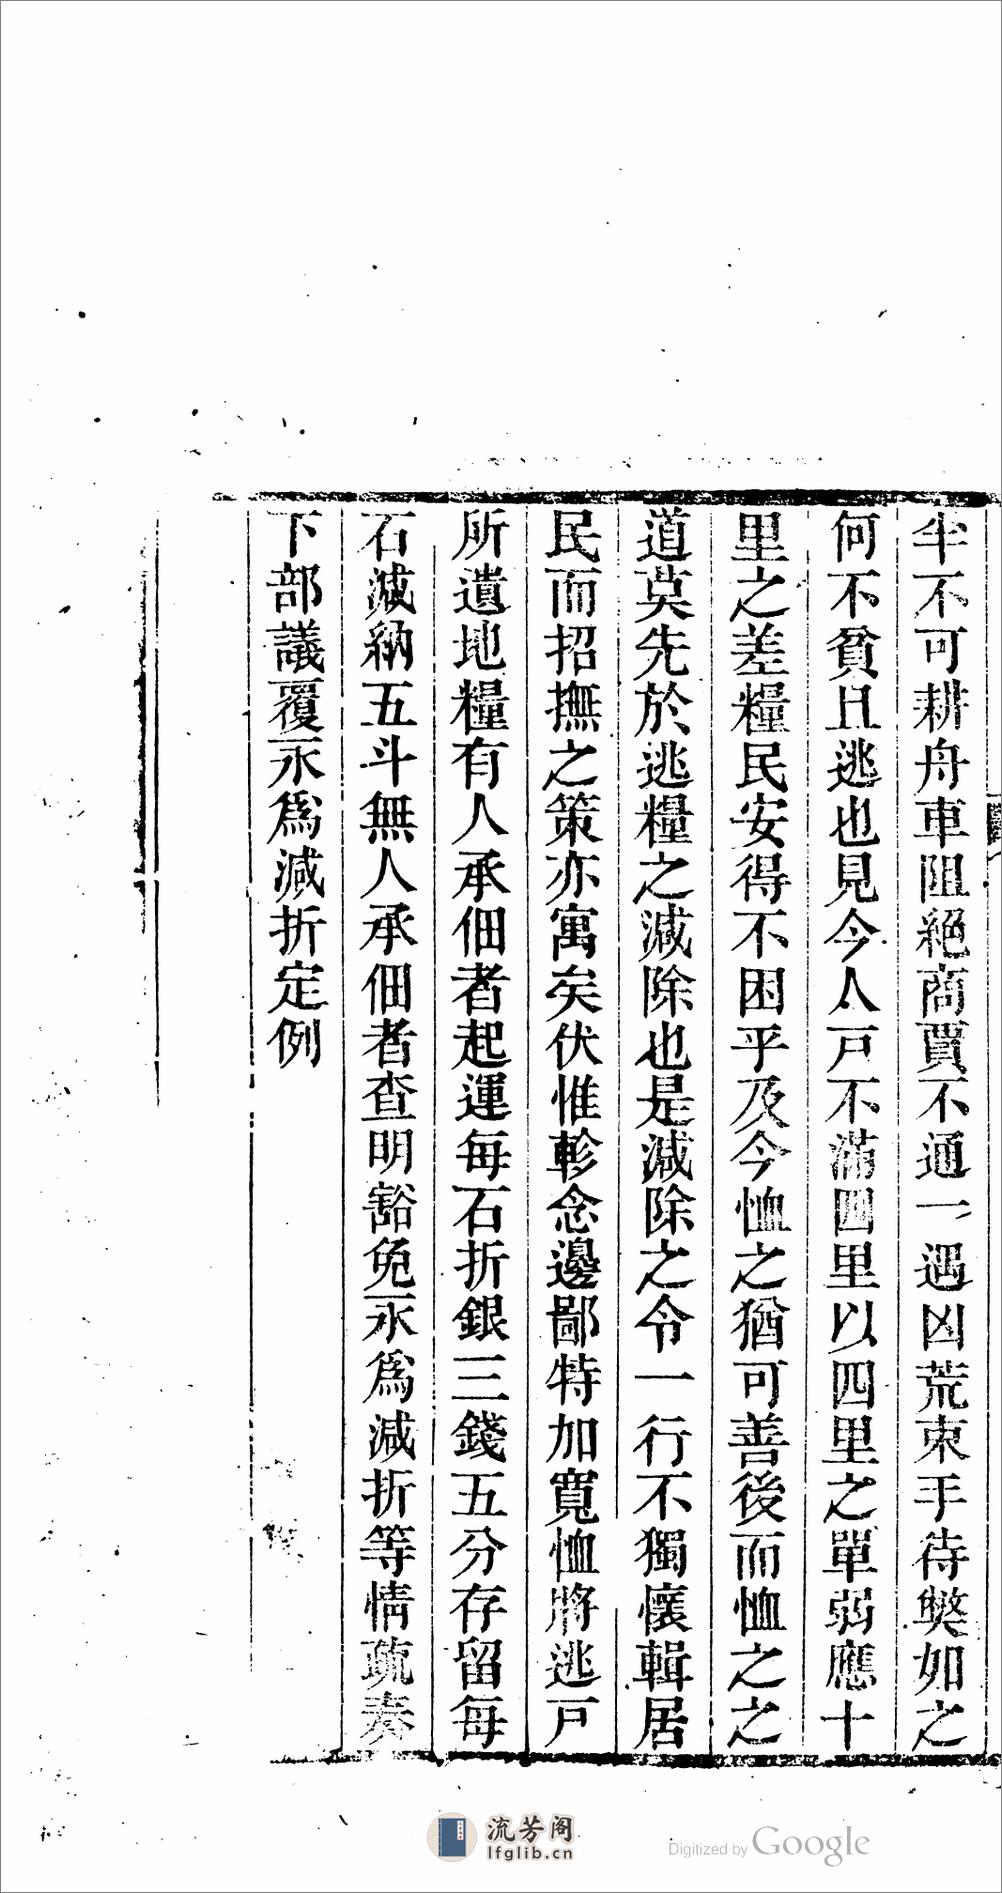 半不可耕舟車阻絕商賈不通一遇凶荒束手待斃如之
何不貧且逃也見今人戸不滿四里以四里之單弱應十
里之差糧民安得不困乎及今恤之猶可善後而恤之之
道莫先於逃糧之減除也是減除之令一行不獨懷輯居
民而招撫之策亦寓矣伏惟軫念邊鄙特加寬恤將逃戸
所遺地糧有人承佃者起運每石折銀三錢五分存留每
石減納五斗無人承佃者查明豁免永爲減折等情疏奏
下部議覆永爲減折定例
流芳阁
lfglib.cn
Digitized by Google